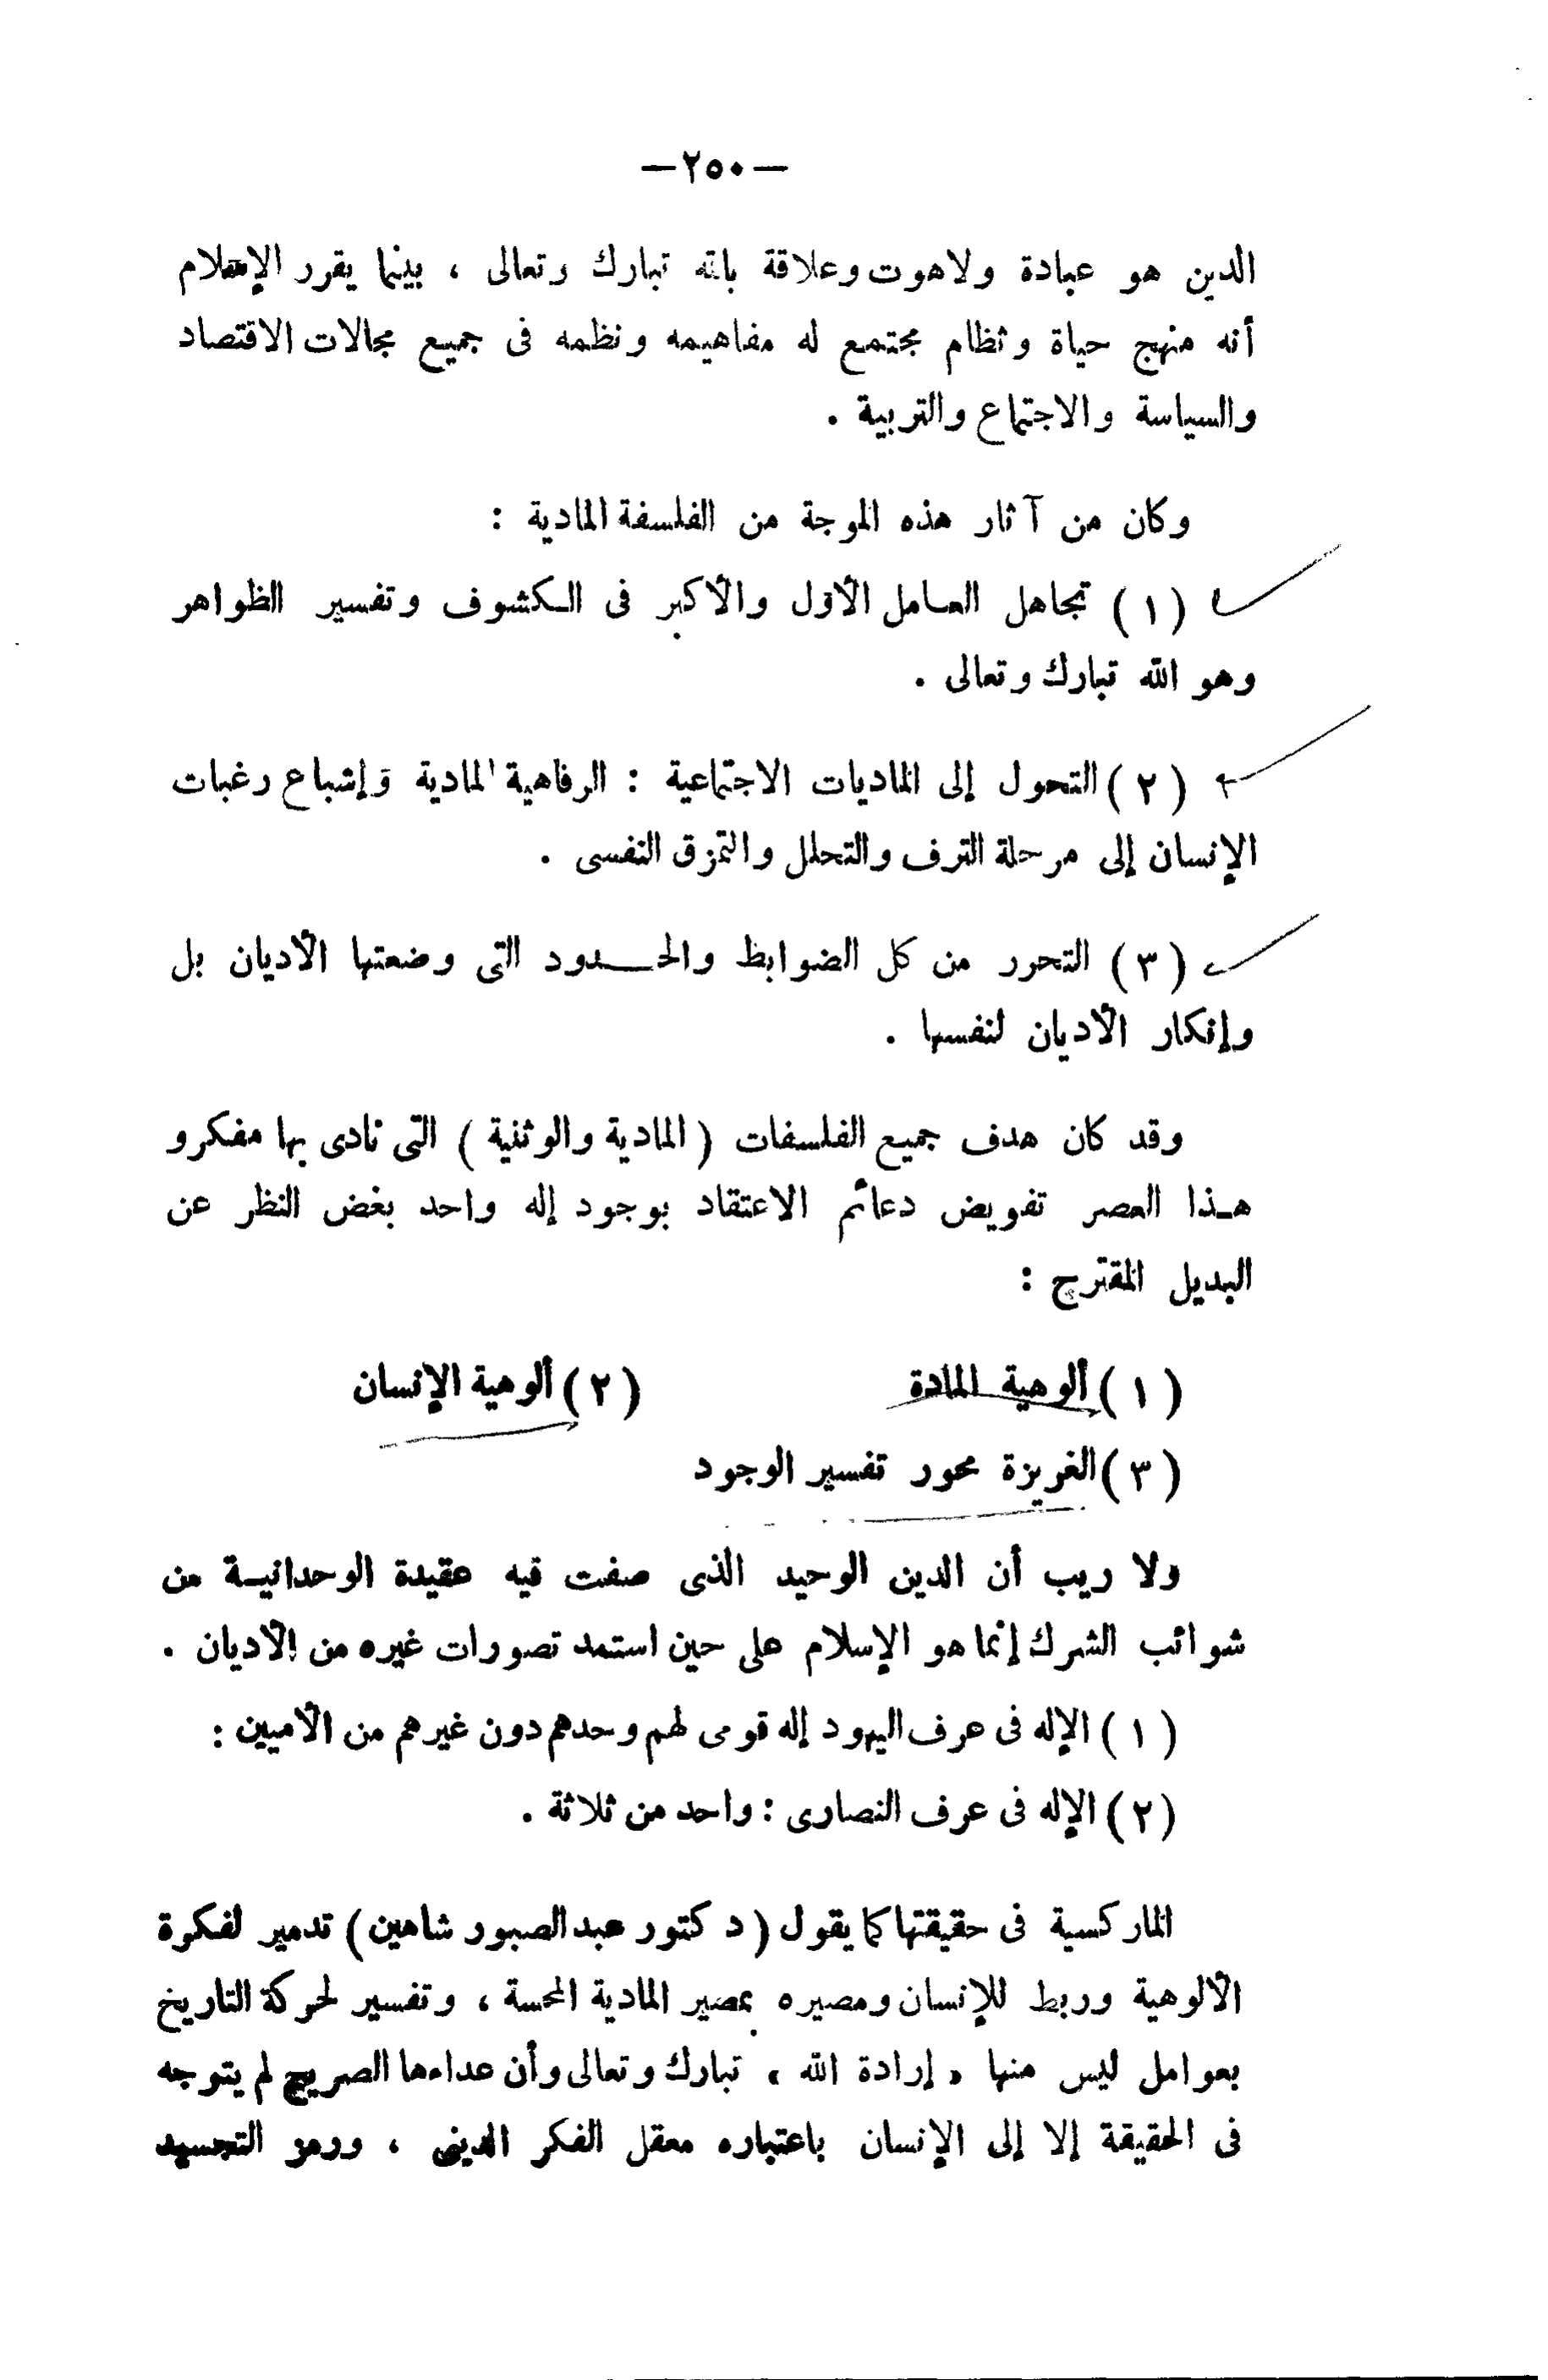 —٢٥٠—
الدين هو عبادة ولاهوت وعلاقة بالله تبارك وتعالى ، بينما يقرر الإسلام
أنه منهج حياة ونظام مجتمع له مفاهيمه ونظمه فى جميع مجالات الاقتصاد
والسياسة والاجتماع والتربية .
وكان من آثار هذه الموجة من الفلسفة المادية :
(١) تجاهل العامل الأول والأكبر فى الكشوف وتفسير الظواهر
وهو الله تبارك وتعالى .
(٢) التحول إلى الماديات الاجتماعية : الرفاهية المادية وإشباع رغبات
الإنسان إلى مرحلة الترف والتحلل والتمزق النفسى .
(٣) التحرر من كل الضوابط والحدود التى وضعتها الأديان بل
وإنكار الأديان لنفسها .
وقد كان هدف جميع الفلسفات ( المادية والوثنية ) التى نادى بها مفكرو
هذا العصر تفويض دعائم الاعتقاد بوجود إله واحد بغض النظر عن
البديل المقترح :
(١) ألوهية المادة (٢) ألوهية الإنسان
(٣) الغريزة محور تفسير الوجود
ولا ريب أن الدين الوحيد الذى صفت فيه عقيدة الوحدانية من
شوائب الشرك إنما هو الإسلام على حين استمد تصورات غيره من الأديان .
(١) الإله فى عرف اليهود إله قومى لهم وحدهم دون غيرهم من الأميين :
(٢) الإله فى عرف النصارى : واحد من ثلاثة .
الماركسية فى حقيقتها كما يقول ( دكتور عبد الصبور شاهين ) تدمير لفكرة
الألوهية وربط للإنسان ومصيره بمصير المادية المحسة ، وتفسير لحركة التاريخ
بعوامل ليس منها « إرادة الله » تبارك وتعالى وأن عداءها الصريح لم يتوجه
فى الحقيقة إلا إلى الإنسان باعتباره معقل الفكر الدينى ، ورمز التجسيد